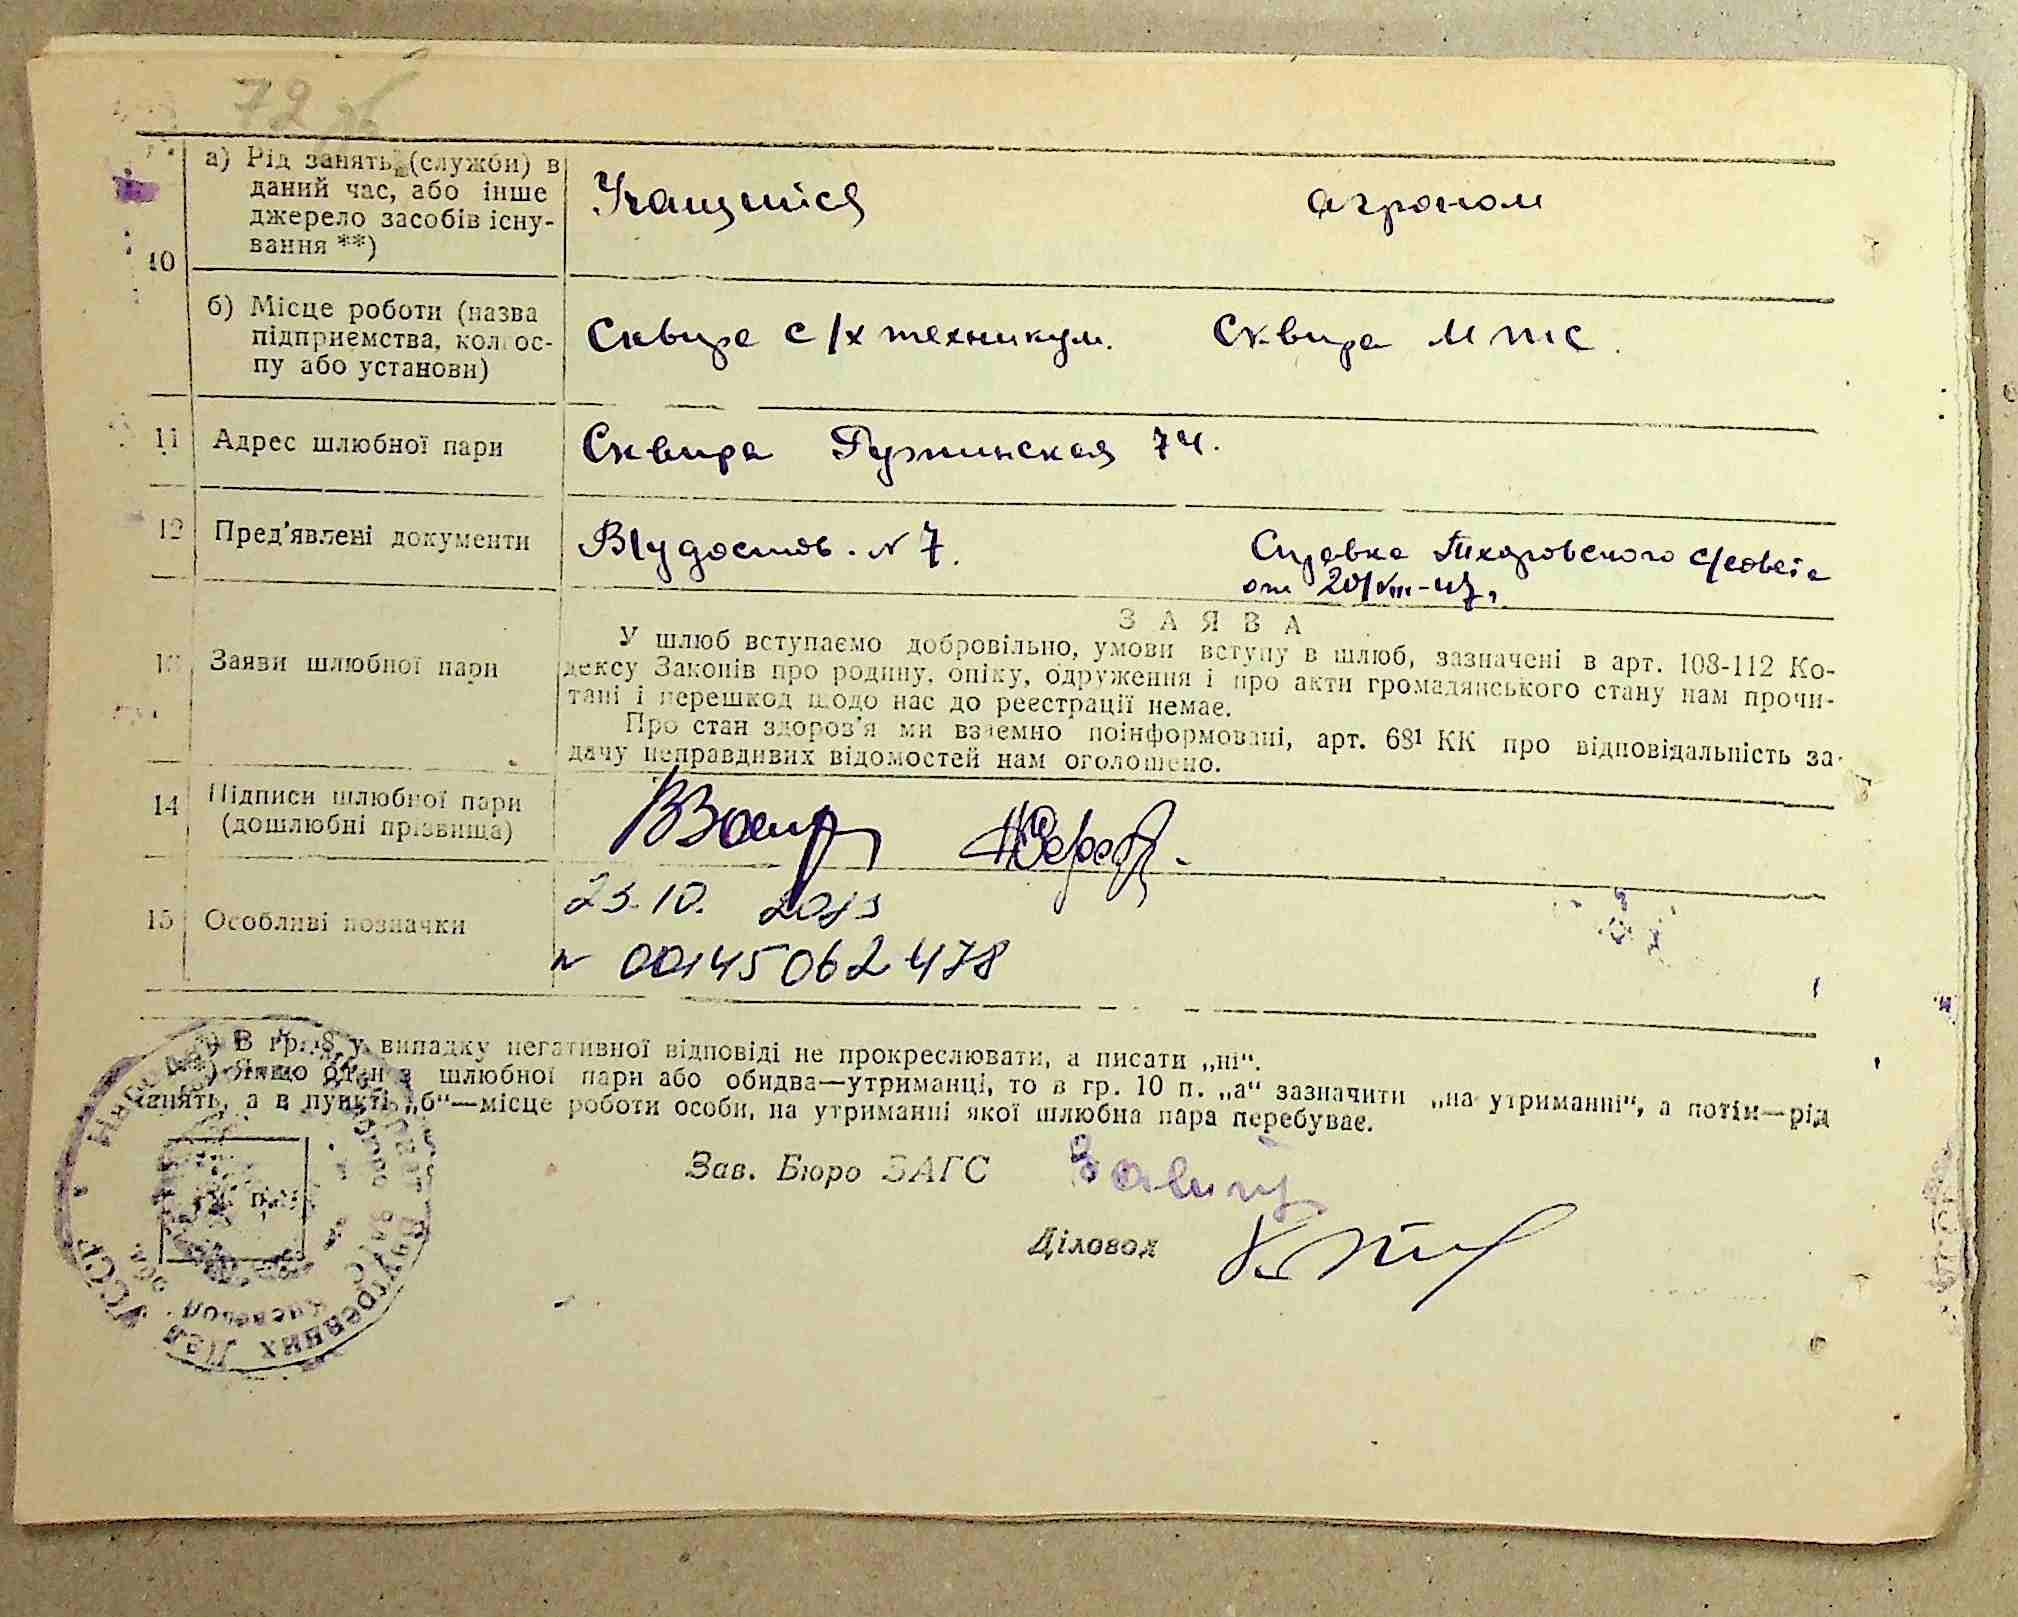 72 об
10
а) Рід занять (служби) в
даний час, або інше
джерело засобів існу-
вання **)
Учащийся
агроном
б) Місце роботи (назва
підприємства, колгос-
пу або установи)
Сквира с/х техникум.
Сквира МТС.
11 Адрес шлюбної пари
Сквира 74.
12 Пред'явлені документи
В/удостов. N 7.
Справка с/совета
от 20/VIII-47,
13 Заяви шлюбної пари
ЗАЯВА
У шлюб вступаємо добровільно, умови вступу в шлюб, зазначені в арт. 108-112 Ко-
дексу Законів про родину, опіку, одруження і про акти громадянського стану нам прочи-
тані і перешкод щодо нас до реєстрації немає.
Про стан здоров'я ми взаємно поінформовані, арт. 68¹ КК про відповідальність за
дачу неправдивих відомостей нам оголошено.
14 Підписи шлюбної пари
(дошлюбні прізвища)
15 Особливі позначки
23.10. 2013
N 00145062478
*) В гр. 8 у випадку негативної відповіді не прокреслювати, а писати „ні“.
**) Якщо один з шлюбної пари або обидва—утриманці, то в гр. 10 п. „а“ зазначити „на утриманні“, а потім—рід
занять, а в пункті „б“—місце роботи особи, на утриманні якої шлюбна пара перебуває.
Зав. Бюро ЗАГС
Діловод
Внутренних Дел УССР